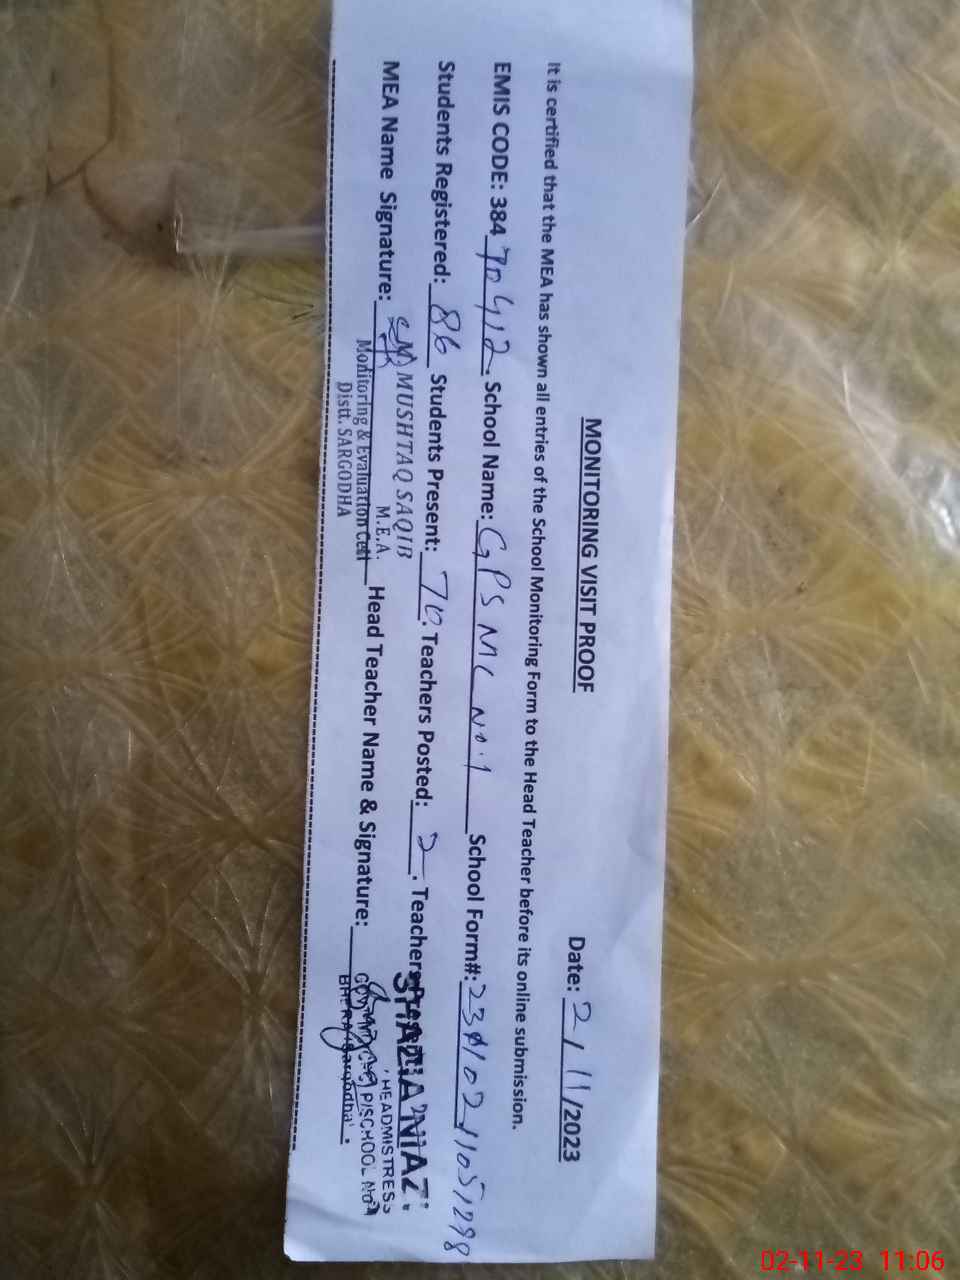 MONITORING VISIT PROOF
Date: 2/11/2023
It is certified that the MEA has shown all entries of the School Monitoring Form to the Head Teacher before its online submission.
EMIS CODE: 384 70412. School Name: GPS MC No.1 School Form#:
Students Registered: 86 Students Present: 70. Teachers Posted: 2. Teachers Present:
MEA Name Signature: MUSHTAQ SAQIB Head Teacher Name & Signature: SHAZIA NIAZ
M.E.A. HEADMISTRESS
Monitoring & Evaluation Cell
Distt. SARGODHA
02-11-23 11:06